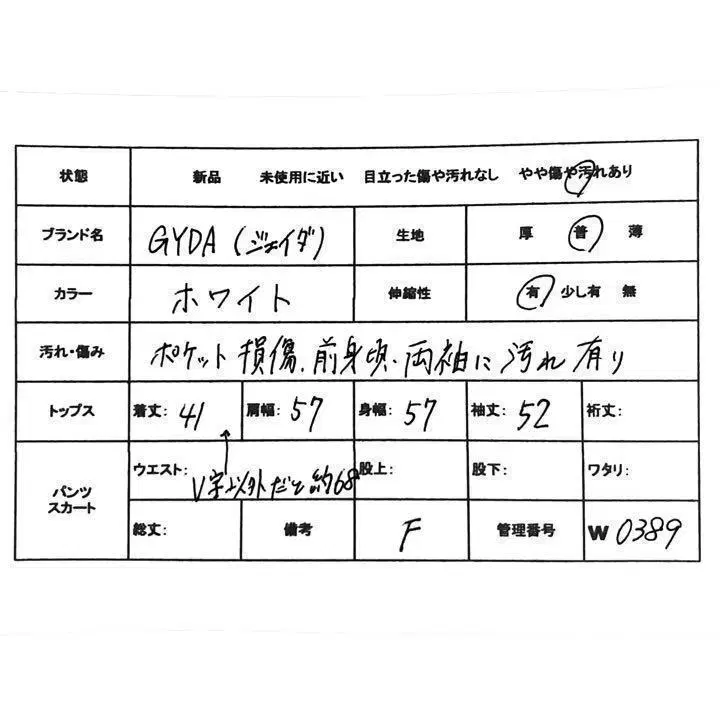 状態 新品 未使用に近い 目立った傷や汚れなし やや傷や汚れあり
ブランド名 GYDA (ジェイダ) 生地 厚 普 薄
カラー ホワイト 伸縮性 有 少し有 無
汚れ・傷み ポケット損傷、前身頃・両袖に汚れ有り
トップス 着丈: 41 肩幅: 57 身幅: 57 袖丈: 52 裄丈:
パンツ
スカート
ウエスト: 股上: 股下: ワタリ:
V字以外だと約68
総丈: 備考 F 管理番号 W 0389